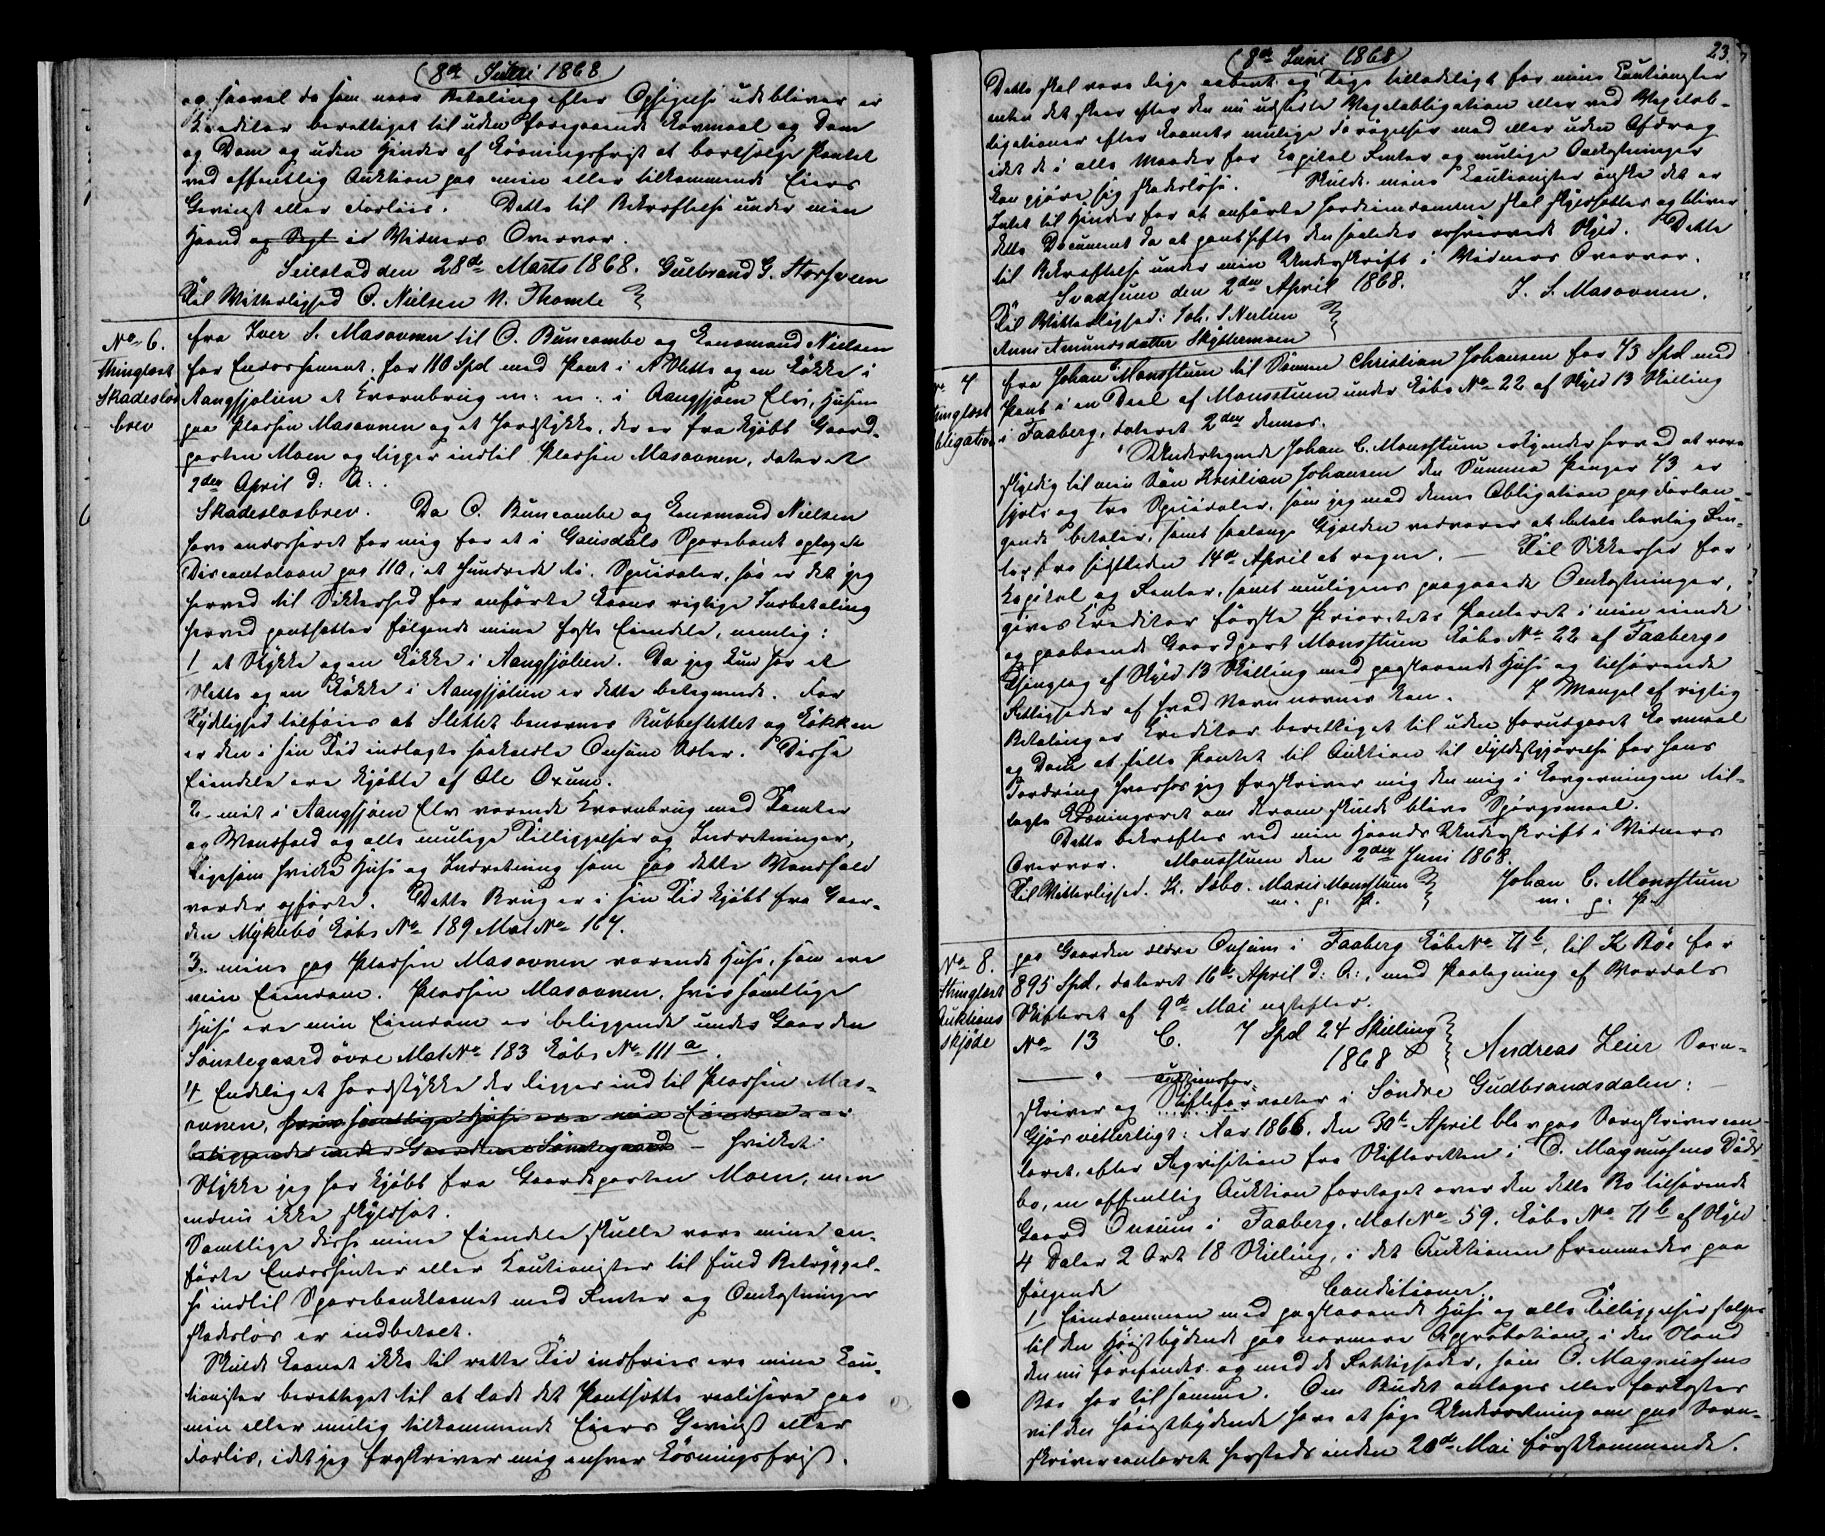 (8de Juni 1868)
og saavel da som naar Betaling efter Opsigelse udebliver er
Kreditor berettiget til uden foregaaende Lovmaal og Dom
og Dom og uden Hinder af Løsningsfrist at bortsælge Pantet
ved offentlig Auktion paa min eller tilkommende Eiers
Gevinst eller Forliis. Dette til Bekræftelse under min
Haand og Segl i Vidners Overvær.
Seielstad den 28de Marts 1868. Gulbrand G. Storsveen
Til Vitterlighed O. Nielsen N. Thomle
No 6.
thinglæst
Skadesløs
brev
fra Iver S. Masovnen til O. Buncombe og Lensmand Nielsen
for Endossement for 110 Spd med Pant i et Slette og en Løkke i
Aangsjølien et Kvernbrug m: m: i Aangsjøen Elv, Husene
paa Pladsen Masovnen og et Jordstykke, der er fra kjøbt Gaard-
parten Moen og ligger indtil Pladsen Masovnen, dateret
2den April d: A: .
Skadesløsbrev. Da O. Buncombe og Lensmand Nielsen
have endosseret for mig for et i Gausdals Sparebank optaget
Discontolaan paa 110, et hundrede ti Speciedaler, saa er det jeg
herved til Sikkerhed for anførte Laans rigtige Indbetaling
herved pantsætter følgende mine faste Eiendele, nemlig:
1 et Stykke og en Løkke i Aangsjølien. Da jeg kun har et
Slette og en Løkke i Aangsjølien er dette betegnende. For
Tydelighed tilføies at Slettet benævnes Rubbeslettet og Løkken
er den i sin Tid indlagte saakaldte Onsum Sæter. Disse
Eiendele ere kjøbte af Ole Oxum.
2 mit i Aangsjøen Elv værende Kvernbrug med Tomter
og Vandfald og alle mulige Tilliggelser og Indretninger,
ligesom hvilke Huse og Indretning som paa dette Vandfald
vorder opførte. Dette Brug er i sin Tid kjøbt fra Gaar-
den Myklebø Løbe No 189 Mat No 167.
3. mine paa Pladsen Masovnen værende Huse, som ere
min Eiendom. Pladsen Masovnen, hvis samtlige
Huse ere min Eiendom er beliggende under Gaarden
Sønstegaard øvre Mat No 183 Løbe No 111a.
4 Endelig et Jordstykke der ligger ind til Pladsen Mas-
ovnen, hvis samtlige Huse ere min Eiendom
beliggende under Gaarden Sønstegaard – hvilket
Stykke jeg har kjøbt fra Gaardsparten Moen, men
endnu ikke skyldsat.
Samtlige disse mine Eiendele skulle være mine an-
førte Endossenter eller Kautionister til fuld Betryggel-
se indtil Sparebanklaanet med Renter og Omkostninger
skadesløs er indbetalt.
Skulde Laanet ikke til rette Tid indfries ere mine Cau-
tionister berettiget til at lade det Pantsatte realisere paa
min eller mulig tilkommende Eiers Gevinst eller
Forlis, idet jeg fraskriver mig enhver Løsningsfrist.
(8de Juni 1868)
23.
Dette skal være lige aabent og lige tilladeligt for mine Cautionister
enten det skeer efter den nu udstedte Vexelobligation eller ved Vexelob-
ligationer efter Laanets mulige Forøgelser med eller uden Afdrag
idet de i alle Maader for Kapital Renter og mulige Omkostninger
kan gjøre sig skadesløse. Skulde mine Cautionister ønske det er
Intet til Hinder for at anførte Jordeiendomme skal skyldsættes og bliver
dette Document da at panthefte den saaledes ashvervede Skyld. Dette
til Bekræftelse under min Underskrift i Vidners Overvær.
Svadsum den 2den April 1868.
I. S. Masovnen.
Til Vitterlighed: Joh. S. Nerlien
Anne Amundsdatter Skyttermoen
No 7
thinglæst
Obligation
fra Johan Monsstum til Sønnen Christian Johansen for 73 Spd med
Pant i en Deel af Monsstum under Løbe No 22 af Skyld 13 Skilling
i Faaberg, dateret 2den dennes.
Undertegnede Johan C. Monsstum erkjender herved at være
skyldig til min Søn Kristian Johansen den Summa Penger 73 er
sytti og tre Speciedaler, som jeg med denne Obligation paa Forlan-
gende betaler, samt saalænge Gjælden vedvarer at betale lovlig Ren-
ter fra sidstleden 14de April at regne. — Til Sikkerhed for
Kapital og Renter, samt muligens paagaaende Omkostninger,
gives Kreditor første Prioritets Panteret i min eiende
og paaboende Gaardpart Monsstum Løbe No 22 af Faabergs
Thinglag af Skyld 13 Skilling med paastaaende Huse og tilhørende
Rettigheder af hvad Navn nævnes kan. I Mangel af rigtig
Betaling er Kreditor berettiget til uden forudgaaet Lovmaal
og Dom at stille Pantet til Auktion til Fyldestgjørelse for hans
Fordring hvorhos jeg fraskriver mig den mig i Lovgivningen til-
lagte Løsningsret om derom skulde blive Spørgsmaal.
Dette bekræftes ved min Haands Underskrift i Vidners
Overvær. Monsstum den 2den Juni 1868.
Til Vitterlighed. K. Sæbo. Marie Monsstum
m. p. P.
Johan C. Monsstum
m. p. P.
No 8.
thinglæst
Auktions
skjøde
paa Gaarden ældre Onsum i Faaberg Løbe No 71b, til K Bøe for
895 Spd, dateret 16de April d: A:, med Paategning af Vardals
Skifteret af 9de Mai næstefter.
No 13 C. 7 Spd 24 Skilling
1868
Andreas Leir Soren-
skriver og auctionsfor- Skifteforvalter i Søndre Gudbrandsdalen:
Gjør vitterligt: Aar 1866. den 30te April blev paa Sorenskrivercon-
toret, efter Reqvisition fra Skifteretten i O. Magnussens Døds-
bo, en offentlig Auktion foretaget over den dette Bo tilhørende
Gaard Onsum i Faaberg, Mat No 59. Løbe No 71b af Skyld
4 Daler 2 Ort 18 Skilling, i det Auktionen fremmedes paa
følgende Conditioner:
1 Eiendommen med paastaaende Huse og alle Tilliggelser sælges
til den Høistbydende paa nærmere Approbation, i den Stand
den nu forefindes og med de Rettigheder, som O. Magnussens
Bo har til samme. Om Budet antages eller forkastes
vil den høistbydende have at søge Underretning om paa Soren-
skrivercontoret hersteds inden 20de Mai førstkommende.